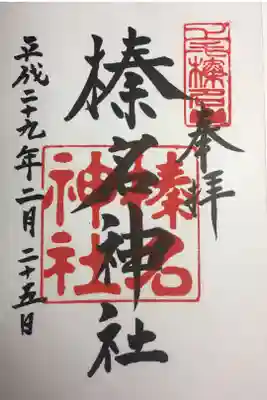 奉拝
榛名神社
榛名
神社
平成二十九年二月二十五日